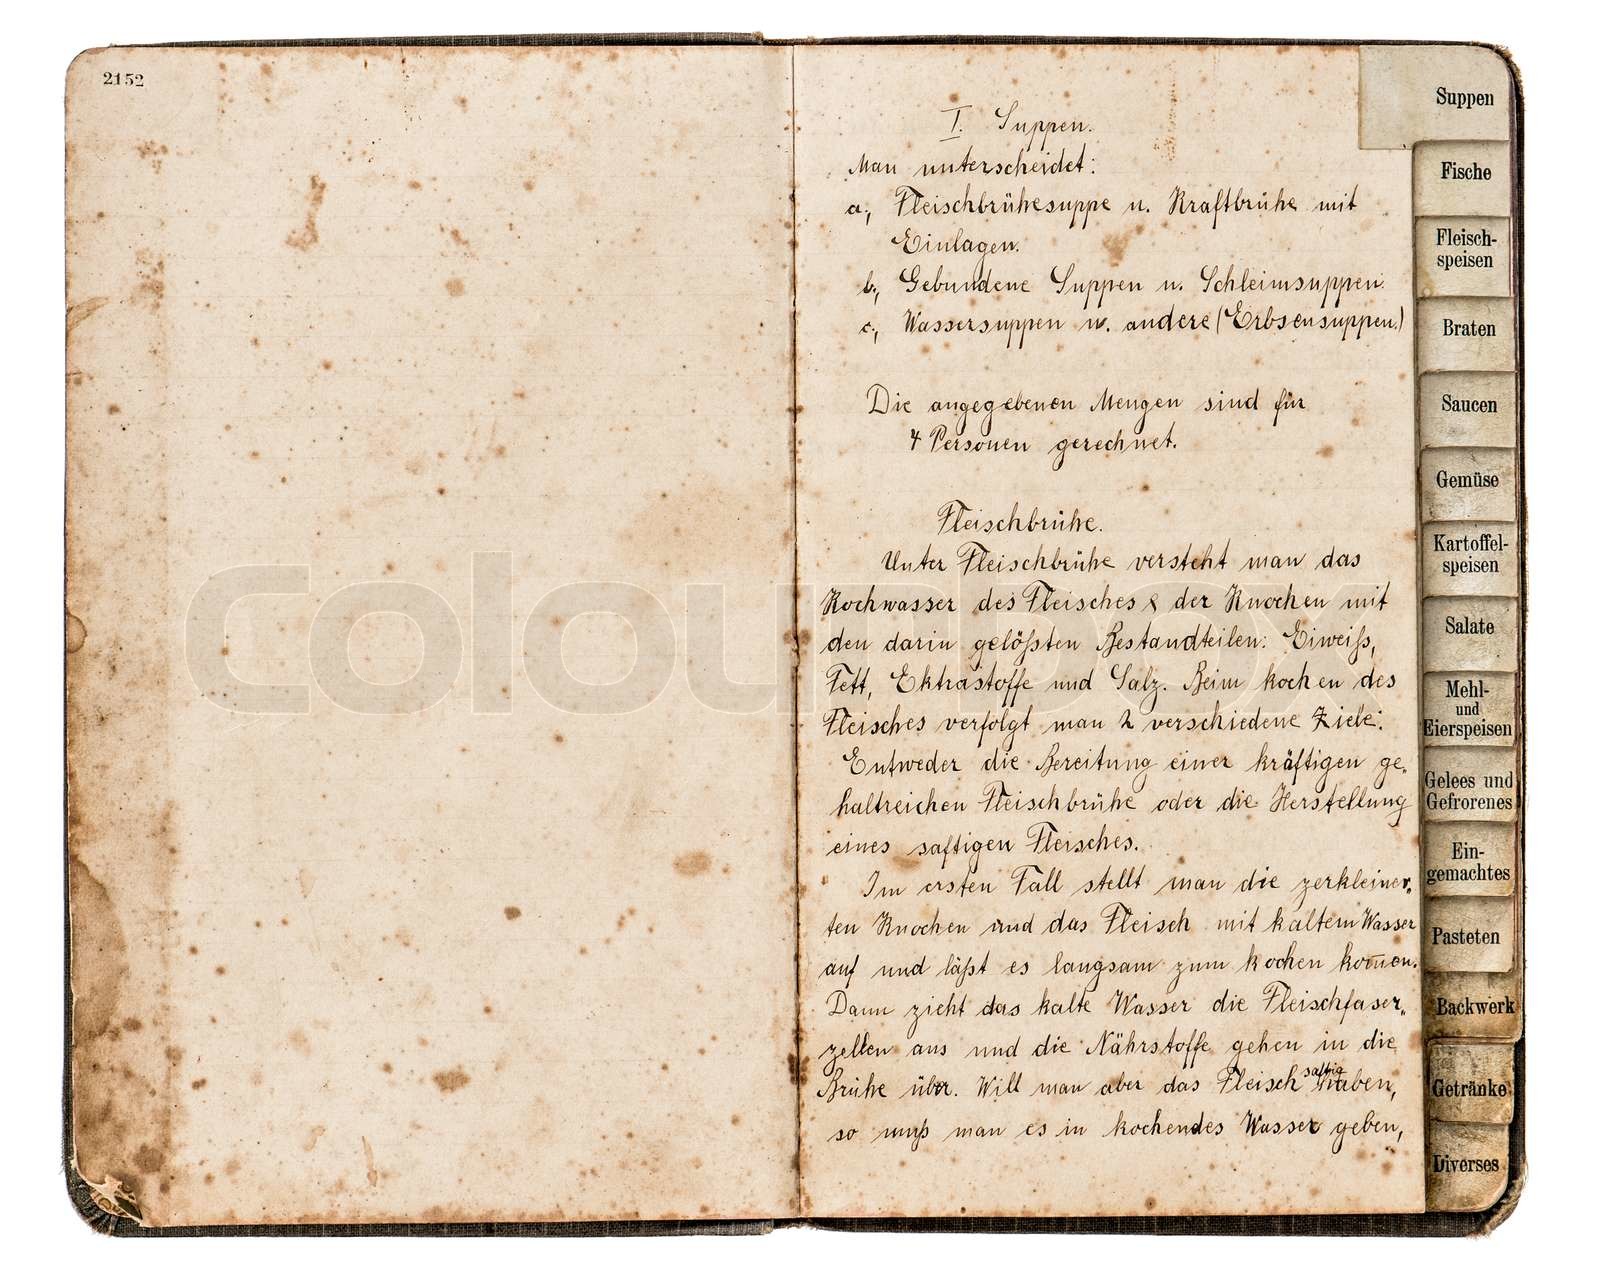 2152
I. Suppen.
Man unterscheidet:
a., Fleischbrühesuppe u. Kraftbrühe mit
Einlagen.
b., Gebundene Suppen u. Schleimsuppen.
c., Wassersuppen u. andere (Erbsensuppen.)
Die angegebenen Mengen sind für
4 Personen gerechnet.
Fleischbrühe.
Unter Fleischbrühe versteht man das
Kochwasser des Fleisches & der Knochen mit
den darin gelößten Bestandteilen: Eiweiß,
Fett, Ektrastoffe und Salz. Beim kochen des
Fleisches verfolgt man 2 verschiedene Ziele:
Entweder die Bereitung einer kräftigen ge„
haltreichen Fleischbrühe oder die Herstellung
eines saftigen Fleisches.
Im ersten Fall stellt man die zerkleiner„
ten Knochen und das Fleisch mit kaltem Wasser
auf und läßt es langsam zum kochen kom̅en.
Dann zieht das kalte Wasser die Fleischfaser„
zellen aus und die Nährstoffe gehen in die
Brühe über. Will man aber das Fleisch saftig haben,
so muß man es in kochendes Wasser geben,
Suppen
Fische
Fleisch-
speisen
Braten
Saucen
Gemüse
Kartoffel-
speisen
Salate
Mehl-
und
Eierspeisen
Gelees und
Gefrorenes
Ein-
gemachtes
Pasteten
Backwerk
Getränke
Diverses
Colourbox